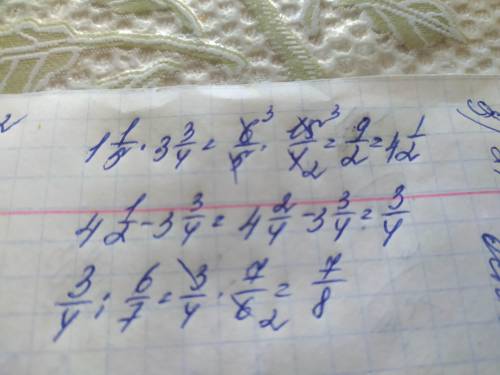 1 1/5 · 3 3/4 = 6/5 · 15/4 = 9/2 = 4 1/2
4 1/2 - 3 3/4 = 4 2/4 - 3 3/4 = 3/4
3/4 : 6/7 = 3/4 · 7/6 = 7/8